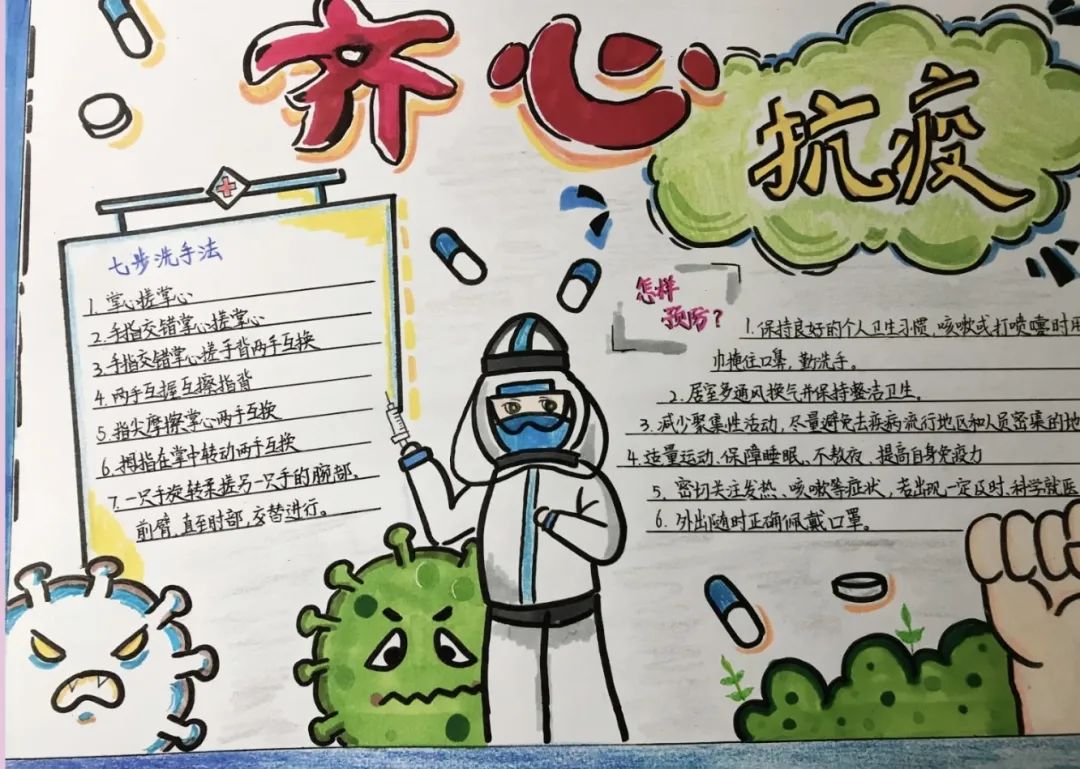 齐心
抗疫
七步洗手法
1.掌心搓掌心
2.手指交错掌心搓掌心
3.手指交错掌心搓手背两手互换
4.两手互握互擦指背
5.指尖摩擦掌心两手互换
6.拇指在掌中转动两手互换
7.一只手旋转揉搓另一只手的腕部、
前臂,直至肘部,交替进行。
怎样
预防?
1.保持良好的个人卫生习惯,咳嗽或打喷嚏时用
巾捂住口鼻,勤洗手。
2.居室多通风换气并保持整洁卫生。
3.减少聚集性活动,尽量避免去疾病流行地区和人员密集的地
4.适量运动、保障睡眠、不熬夜、提高自身免疫力
5.密切关注发热、咳嗽等症状,若出现一定及时、科学就医
6.外出随时正确佩戴口罩。